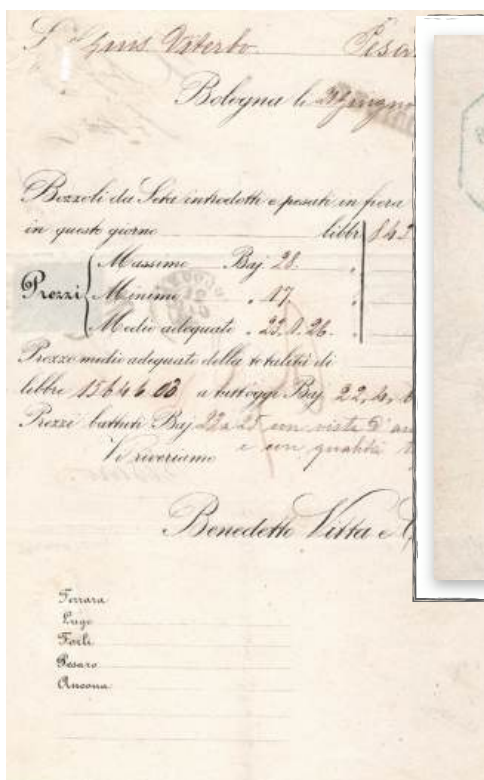 Viterbo Pesar
Bologna li 21 giugno
Bozzoli da Seta introdotti e pesati in fiera
in questo giorno libbr 843
Massimo Baj. 28.
Prezzi Minimo „ 17.
Medio adeguato „ 23.0.26.
Prezzo medio adeguato della totalità di
libbre 15646.03 a tutt'oggi Baj 22,4,6
Prezzi battuti Baj 22 a 25 con vista d'au
Vi riveriamo e con qualità
Benedetto Vitta e C
Ferrara
Lugo
Forlì
Pesaro
Ancona